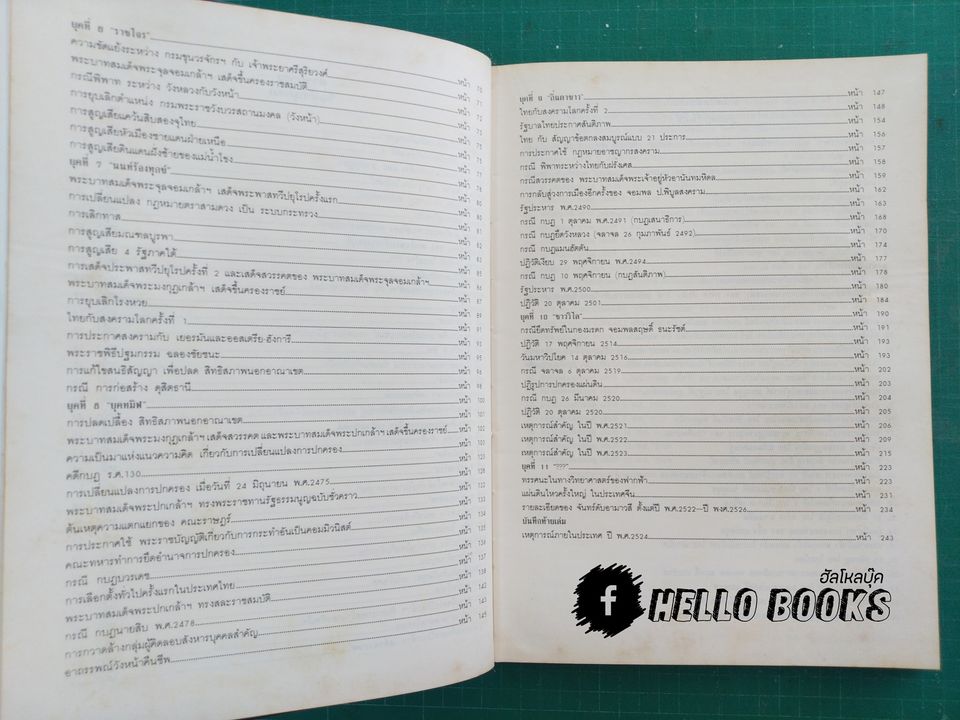 ยุคที่ 6 "ราชโจร"
ความขัดแย้งระหว่าง กรมขุนวรจักรฯ กับ เจ้าพระยาศรีสุริยวงศ์ หน้า 70
พระบาทสมเด็จพระจุลจอมเกล้าฯ เสด็จขึ้นครองราชสมบัติ หน้า 71
กรณีพิพาท ระหว่าง วังหลวงกับวังหน้า หน้า 72
การยุบเลิกตำแหน่ง กรมพระราชวังบวรสถานมงคล (วังหน้า) หน้า
การสูญเสียแคว้นสิบสองจุไทย หน้า
การสูญเสียหัวเมืองชายแดนฝ่ายเหนือ หน้า
การสูญเสียดินแดนฝั่งซ้ายของแม่น้ำโขง หน้า
ยุคที่ 7 "นนท์ร้องทุกข์" หน้า
พระบาทสมเด็จพระจุลจอมเกล้าฯ เสด็จประพาสทวีปยุโรปครั้งแรก หน้า
การเปลี่ยนแปลง กฎหมายตราสามดวง เป็น ระบบกระทรวง หน้า
การเลิกทาส หน้า
การสูญเสียมณฑลบูรพา หน้า
การสูญเสีย 4 รัฐภาคใต้ หน้า
การเสด็จประพาสทวีปยุโรปครั้งที่ 2 และเสด็จสวรรคตของ พระบาทสมเด็จพระจุลจอมเกล้าฯ หน้า
พระบาทสมเด็จพระมงกุฎเกล้าฯ เสด็จขึ้นครองราชย์ หน้า
การยุบเลิกโรงหวย หน้า 87
ไทยกับสงครามโลกครั้งที่ 1 หน้า 89
การประกาศสงครามกับ เยอรมันและออสเตรีย-ฮังการี หน้า 91
พระราชพิธีปฐมกรรม ฉลองชัยชนะ หน้า 93
การแก้ไขสนธิสัญญา เพื่อปลด สิทธิสภาพนอกอาณาเขต หน้า 95
กรณี การก่อสร้าง ดุสิตธานี หน้า 98
ยุคที่ 8 "ยุคทมิฬ" หน้า 100
การปลดเปลื้อง สิทธิสภาพนอกอาณาเขต หน้า 101
พระบาทสมเด็จพระมงกุฎเกล้าฯ เสด็จสวรรคต และพระบาทสมเด็จพระปกเกล้าฯ เสด็จขึ้นครองราชย์ หน้า 102
ความเป็นมาแห่งแนวความคิด เกี่ยวกับการเปลี่ยนแปลงการปกครอง หน้า
คดีกบฏ ร.ศ.130 หน้า
การเปลี่ยนแปลงการปกครอง เมื่อวันที่ 24 มิถุนายน พ.ศ.2475 หน้า
พระบาทสมเด็จพระปกเกล้าฯ ทรงพระราชทานรัฐธรรมนูญฉบับชั่วคราว หน้า
ต้นเหตุความแตกแยกของ คณะราษฎร์ หน้า
การประกาศใช้ พระราชบัญญัติเกี่ยวกับการกระทำอันเป็นคอมมิวนิสต์ หน้า
คณะทหารทำการยึดอำนาจการปกครอง หน้า
กรณี กบฏบวรเดช หน้า
การเลือกตั้งทั่วไปครั้งแรกในประเทศไทย หน้า
พระบาทสมเด็จพระปกเกล้าฯ ทรงสละราชสมบัติ หน้า
กรณี กบฏนายสิบ พ.ศ.2478 หน้า
การกวาดล้างกลุ่มผู้คิดลอบสังหารบุคคลสำคัญ หน้า
อาถรรพณ์วังหน้าคืนชีพ หน้า
ยุคที่ 9 "ถิ่นกาขาว" หน้า 147
ไทยกับสงครามโลกครั้งที่ 2 หน้า 148
รัฐบาลไทยประกาศสันติภาพ หน้า 154
ไทย กับ สัญญาข้อตกลงสมบูรณ์แบบ 21 ประการ หน้า 156
การประกาศใช้ กฎหมายอาชญากรสงคราม หน้า 157
กรณี พิพาทระหว่างไทยกับฝรั่งเศส หน้า 158
กรณีสวรรคตของ พระบาทสมเด็จพระเจ้าอยู่หัวอานันทมหิดล หน้า 159
การกลับสู่วงการเมืองอีกครั้งของ จอมพล ป.พิบูลสงคราม หน้า 162
รัฐประหาร พ.ศ.2490 หน้า 163
กรณี กบฏ 1 ตุลาคม พ.ศ.2491 (กบฏเสนาธิการ) หน้า 168
กรณี กบฏยึดวังหลวง (จลาจล 26 กุมภาพันธ์ 2492) หน้า 170
กรณี กบฏแมนฮัตตัน หน้า 174
ปฏิวัติเงียบ 29 พฤศจิกายน พ.ศ.2494 หน้า 177
กรณี กบฏ 10 พฤศจิกายน (กบฏสันติภาพ) หน้า 178
รัฐประหาร พ.ศ.2500 หน้า 180
ปฏิวัติ 20 ตุลาคม 2501 หน้า 184
ยุคที่ 10 "ชาววิไล" หน้า 190
กรณียึดทรัพย์ในกองมรดก จอมพลสฤษดิ์ ธนะรัชต์ หน้า 191
ปฏิวัติ 17 พฤศจิกายน 2514 หน้า 193
วันมหาวิปโยค 14 ตุลาคม 2516 หน้า 193
กรณี จลาจล 6 ตุลาคม 2519 หน้า 202
ปฏิรูปการปกครองแผ่นดิน หน้า 203
กรณี กบฏ 26 มีนาคม 2520 หน้า 204
ปฏิวัติ 20 ตุลาคม 2520 หน้า 205
เหตุการณ์สำคัญ ในปี พ.ศ.2521 หน้า 206
เหตุการณ์สำคัญ ในปี พ.ศ.2522 หน้า 209
เหตุการณ์สำคัญ ในปี พ.ศ.2523 หน้า 215
ยุคที่ 11 "???" หน้า 223
ทรรศนะในทางวิทยาศาสตร์ของฟากฟ้า หน้า 223
แผ่นดินไหวครั้งใหญ่ ในประเทศจีน หน้า 231
รายละเอียดของ จันทร์ดับอามาวสี ตั้งแต่ปี พ.ศ.2522-ปี พงศ.2526 หน้า 234
บันทึกท้ายเล่ม
เหตุการณ์ภายในประเทศ ปี พ.ศ.2524 หน้า 243
ฮัลโหลบุ๊ค
f HELLO BOOKS